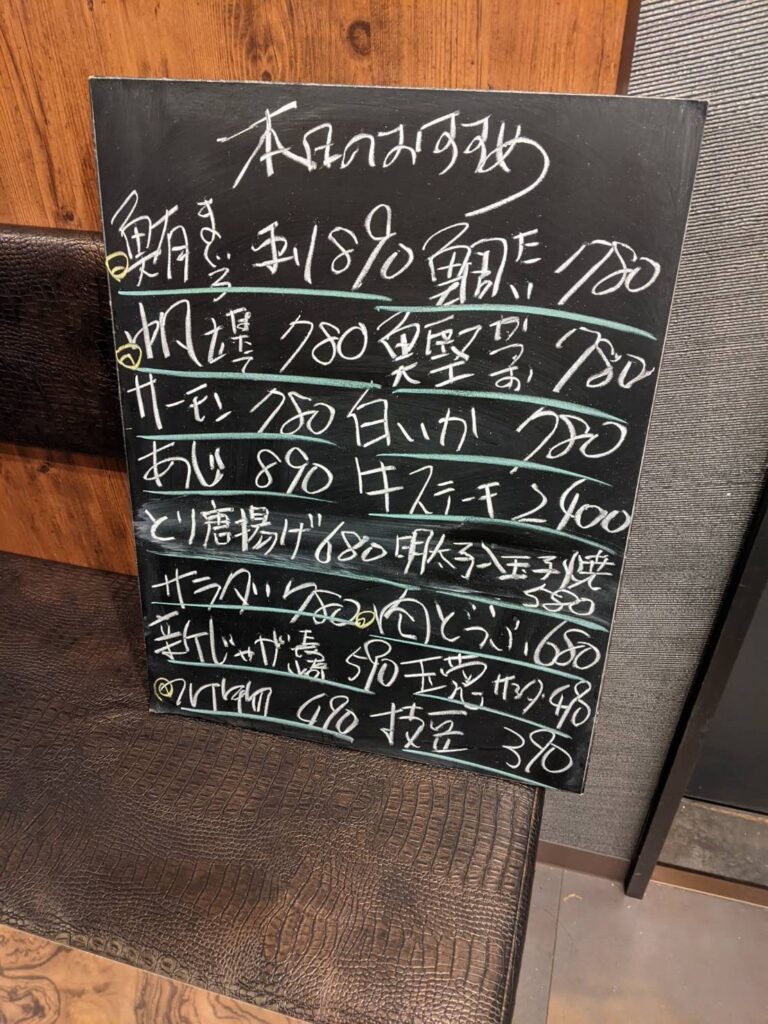 本日のおすすめ
鮪 まぐろ 1890 鯛 たい 780
帆立 ほたて 780 鰹 かつお 780
サーモン 780 白いか 780
あじ 890 牛ステーキ 2400
とり唐揚げ 680 明太子入玉子焼 580
サラダ 780 肉どうふ 680
新じゃが 長崎 590 玉葱サラダ 490
490 枝豆 390